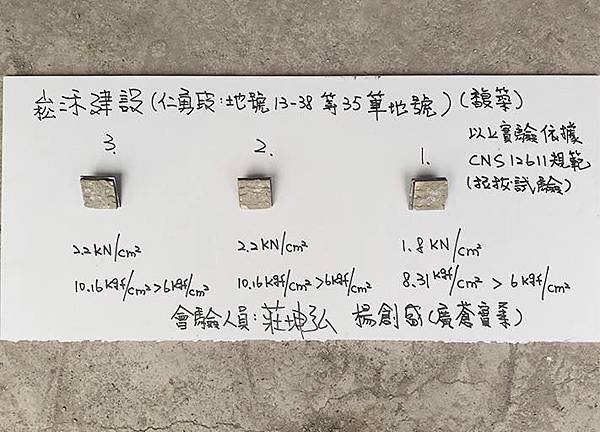 崧禾建設(仁勇段:地號13-38等35筆地號)(馥築)
以上實驗依據
CNS 12611規範
(拉拔試驗)
3.
2.
1.
2.2KN/cm²
2.2KN/cm²
1.8KN/cm²
10.16kgf/cm²>6kgf/cm²
10.16kgf/cm²>6kgf/cm²
8.31kgf/cm²>6kgf/cm²
會驗人員:莊坤弘 楊創盛(廣蒼實業)